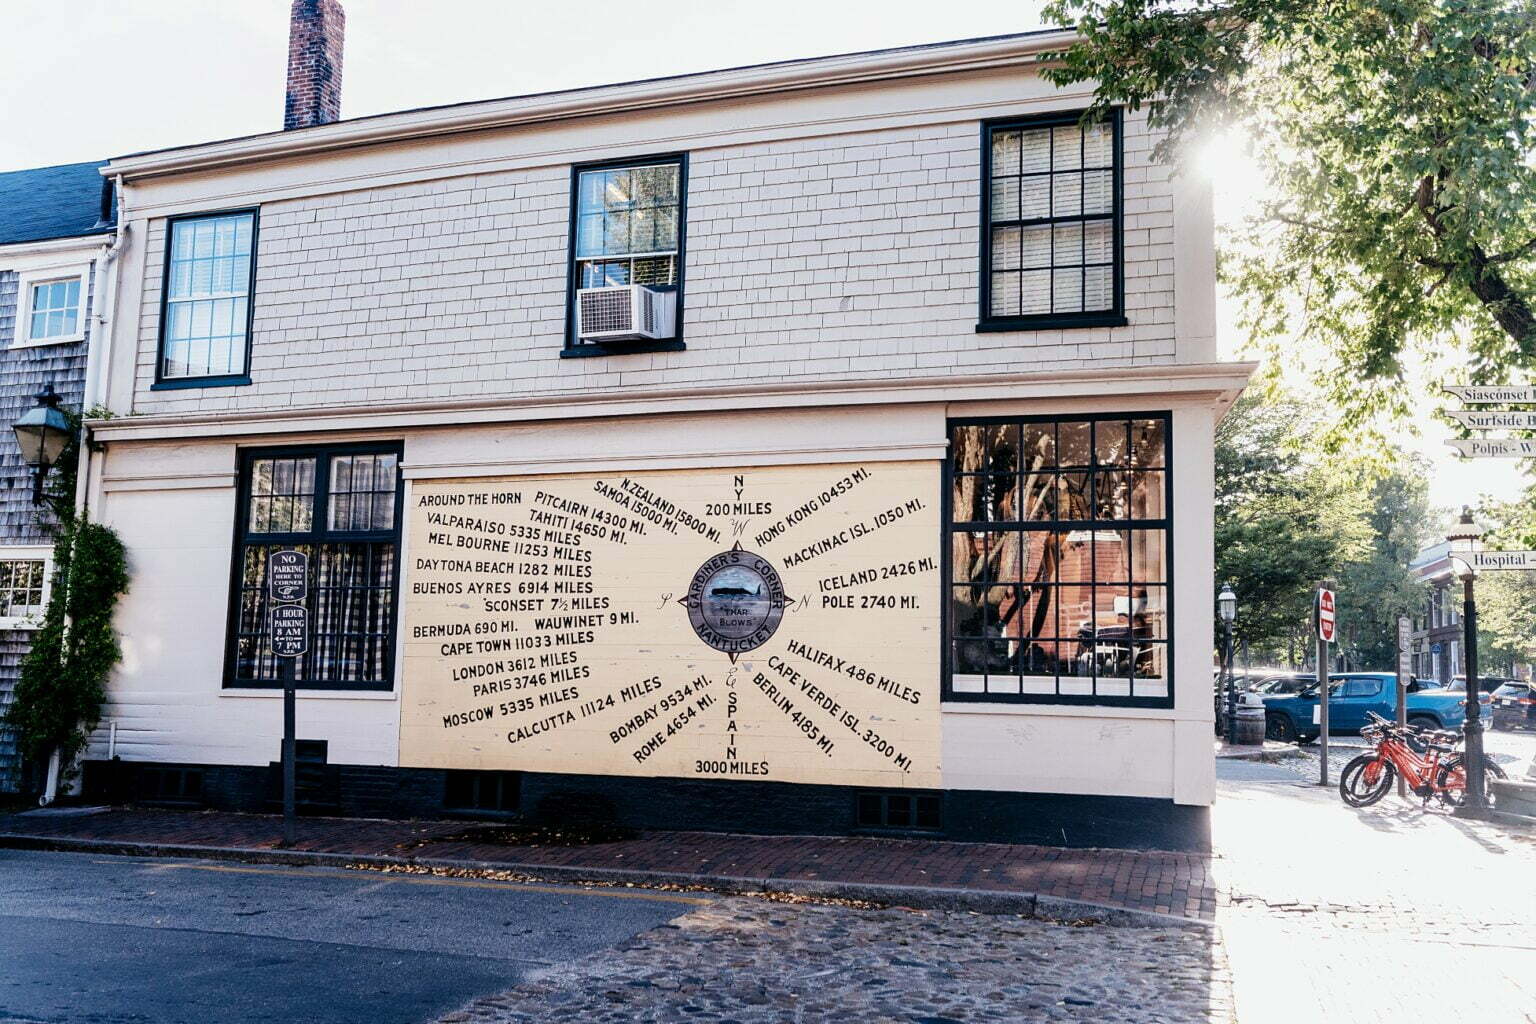 AROUND THE HORN
PITCAIRN 14300 MI.
TAHITI 14650 MI.
SAMOA 15000 MI.
N.ZEALAND 15800 MI.
NY
200 MILES
W
HONG KONG 10453 MI.
MACKINAC ISL. 1050 MI.
ICELAND 2426 MI.
POLE 2740 MI.
VALPARAISO 5335 MILES
MELBOURNE 11253 MILES
DAYTONA BEACH 1282 MILES
BUENOS AYRES 6914 MILES
'SCONSET 7½ MILES
BERMUDA 690 MI. WAUWINET 9 MI.
CAPE TOWN 11033 MILES
LONDON 3612 MILES
PARIS 3746 MILES
MOSCOW 5335 MILES
CALCUTTA 11124 MILES
BOMBAY 9534 MI.
ROME 4654 MI.
S
N
E
GARDINER'S CORNER
"THAR
BLOWS"
NANTUCKET
SPAIN
3000 MILES
HALIFAX 486 MILES
CAPE VERDE ISL. 3200 MI.
BERLIN 4185 MI.
NO
PARKING
HERE TO
CORNER
1 HOUR
PARKING
8 AM
TO
7 PM
Siasconset
Surfside
Polpis - W
Hospital